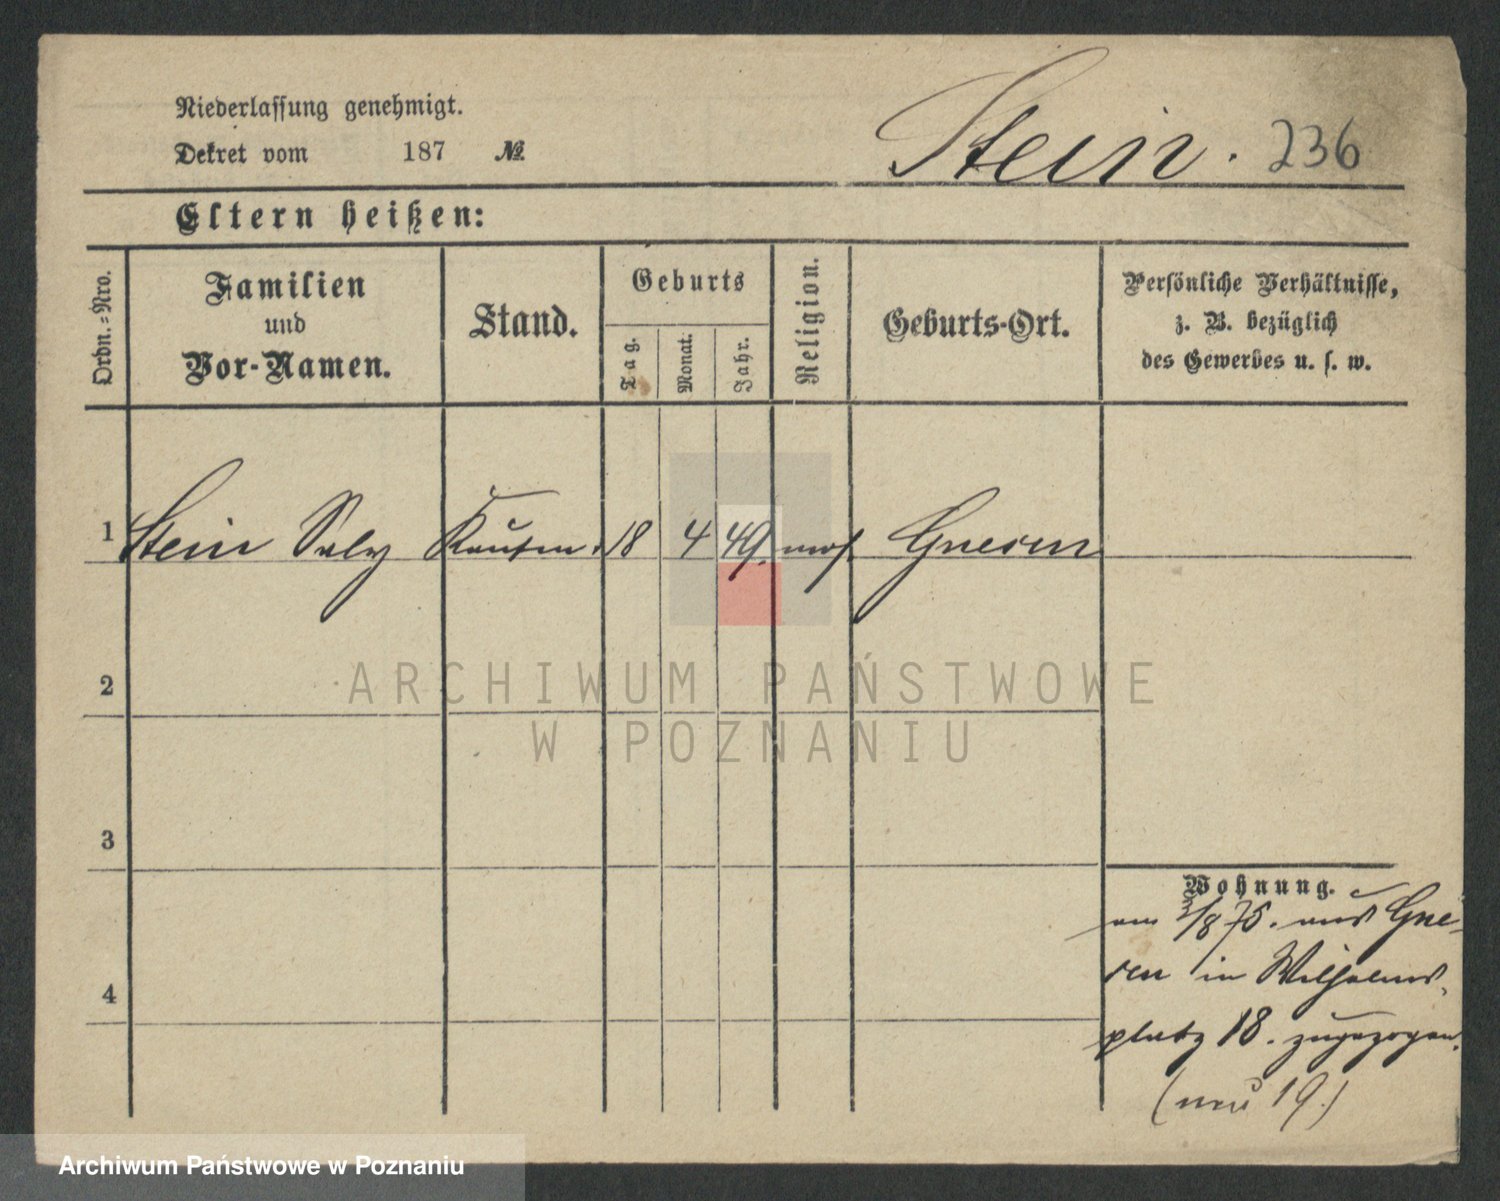 Niederlassung genehmigt.
Stein. 236
Dekret vom 187 №
Eltern heißen:
Ordn.-Nro.
Familien
und
Vor-Namen.
Stand.
Geburts
Tag.
Monat.
Jahr.
Religion.
Geburts-Ort.
Persönliche Verhältnisse,
z. B. bezüglich
des Gewerbes u. s. w.
1 Stein Saly Kaufm. 18 4 49. mos. Gnesen
2
3
4
Wohnung.
am 3/8 75. aus Gne-
sen in Wilhelms-
platz 18. zugezogen.
(neu 19.)
ARCHIWUM PAŃSTWOWE
W POZNANIU
Archiwum Państwowe w Poznaniu